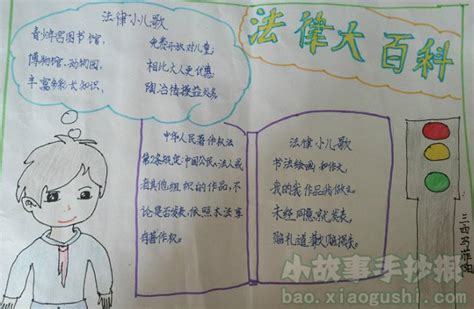 法律小儿歌
青少年宫图书馆,
博物馆、动物园,
丰富多彩长知识,
免费开放对儿童;
相比大人更优惠,
陶冶情操益处多。
法律大百科
中华人民著作权法
第2条规定:中国公民、法人或
者其他组织的作品,不
论是否发表,依照本法享
有著作权。
法律小儿歌
书法绘画和作文,
我的我作品我做主。
未经同意就发表,
赔礼道歉赔损失。
小故事手抄报
bao.xiaogushi.com